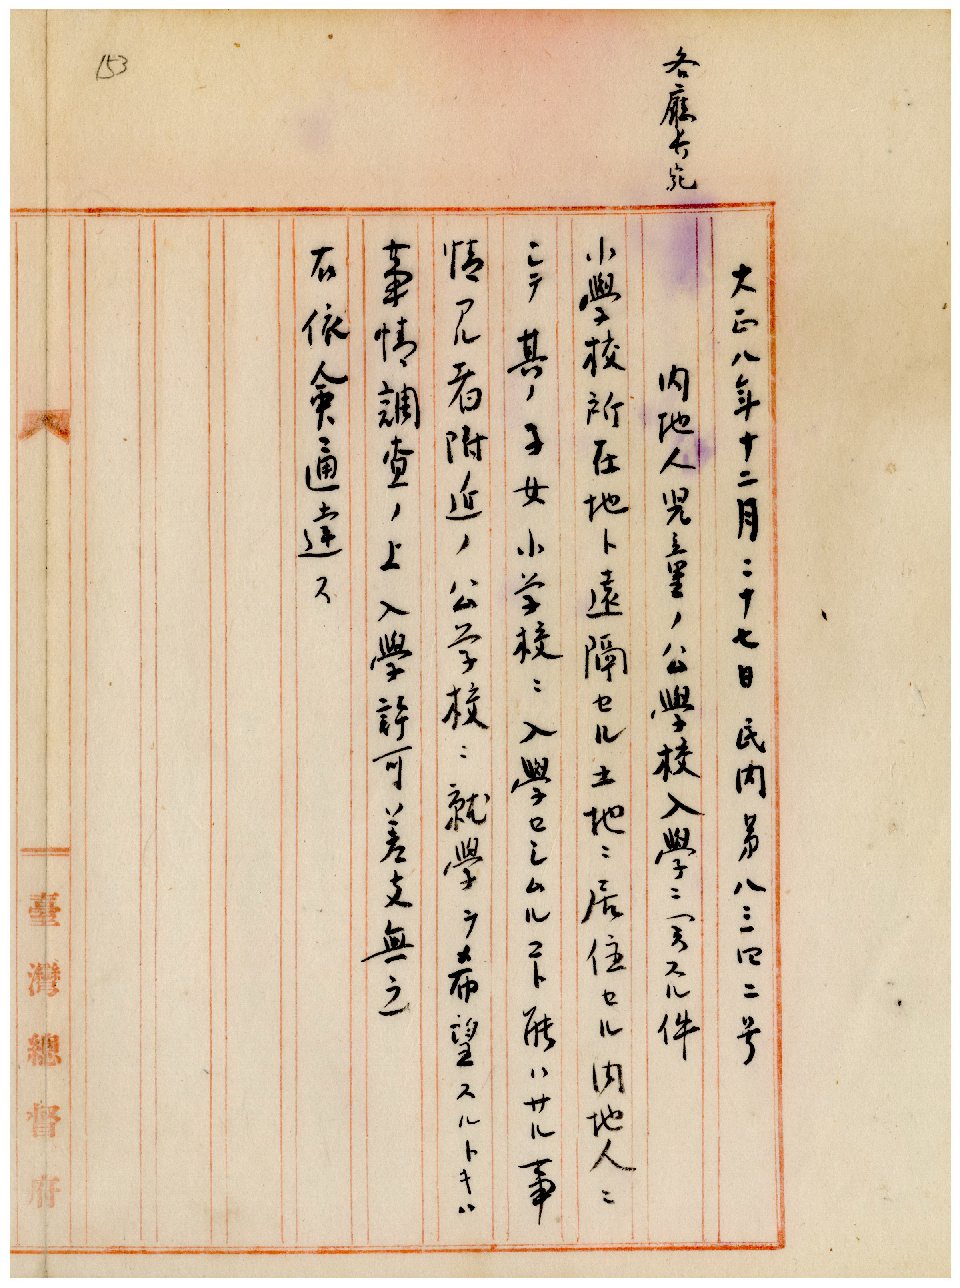 153
各廳長宛
大正八年十二月二十七日民内第八三四二号
内地人児童ノ公學校入學ニ関スル件
小學校所在地ト遠隔セル土地ニ居住セル内地人ニ
シテ其ノ子女小学校ニ入學セシムルコト能ハサル事
情アル者附近ノ公学校ニ就學ヲ希望スルトキハ
事情調査ノ上入學許可差支無之
右依命通達ス
臺灣總督府